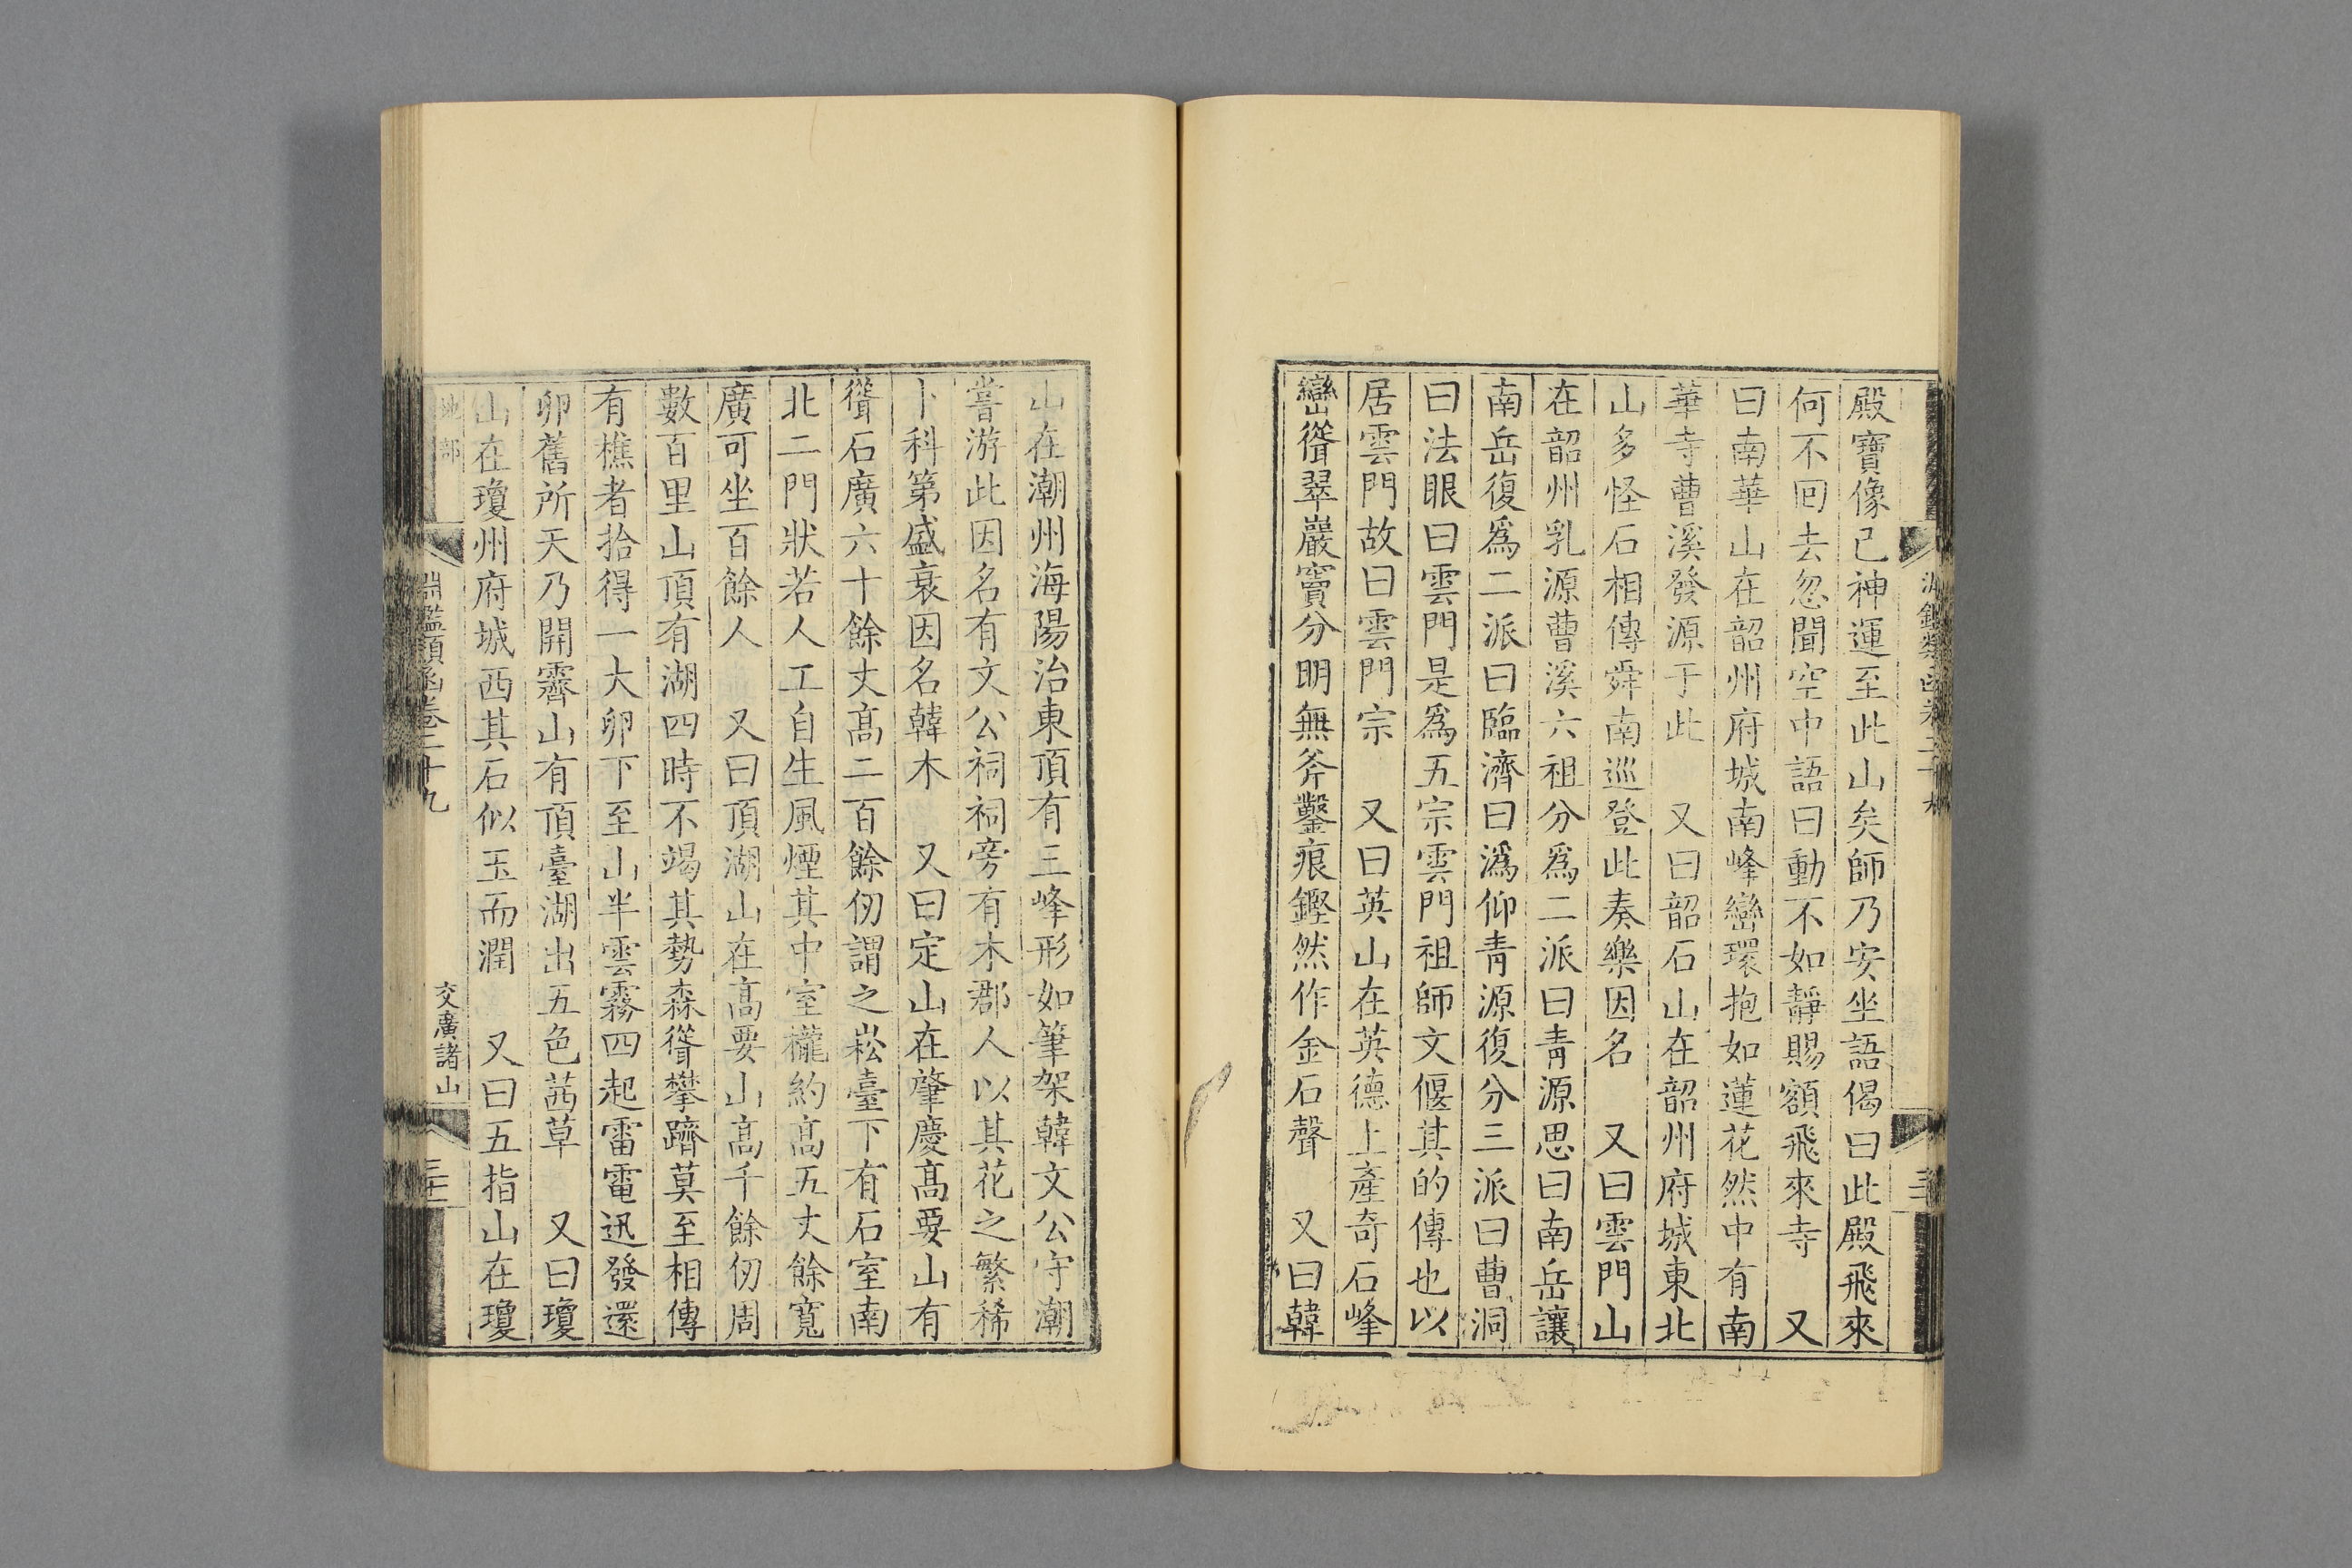 殿寶像已神運至此山矣師乃安坐語偈曰此殿飛來
何不囘去忽聞空中語曰動不如靜賜額飛來寺　又
曰南華山在韶州府城南峰巒環抱如蓮花然中有南
華寺曹溪發源于此　又曰韶石山在韶州府城東北
山多怪石相傳舜南巡登此奏樂因名　又曰雲門山
在韶州乳源曹溪六祖分爲二派曰靑源思曰南岳讓
南岳復爲二派曰臨濟曰潙仰靑源復分三派曰曹洞
曰法眼曰雲門是爲五宗雲門祖師文偃其的傳也以
居雲門故曰雲門宗　又曰英山在英德上產奇石峰
巒聳翠巖竇分明無斧鑿痕鏗然作金石聲　又曰韓
山在潮州海陽治東頂有三峰形如筆架韓文公守潮
嘗游此因名有文公祠祠旁有木郡人以其花之繁稀
卜科第盛衰因名韓木　又曰定山在肇慶高要山有
聳石廣六十餘丈高二百餘仞謂之崧臺下有石室南
北二門狀若人工自生風煙其中室櫳約高五丈餘寬
廣可坐百餘人　又曰頂湖山在高要山高千餘仞周
數百里山頂有湖四時不竭其勢森聳攀躋莫至相傳
有樵者拾得一大卵下至山半雲霧四起雷電迅發還
卵舊所天乃開霽山有頂臺湖出五色茜草　又曰瓊
山在瓊州府城西其石似玉而潤　又曰五指山在瓊
地部　淵鑑類函卷二十九　交廣諸山